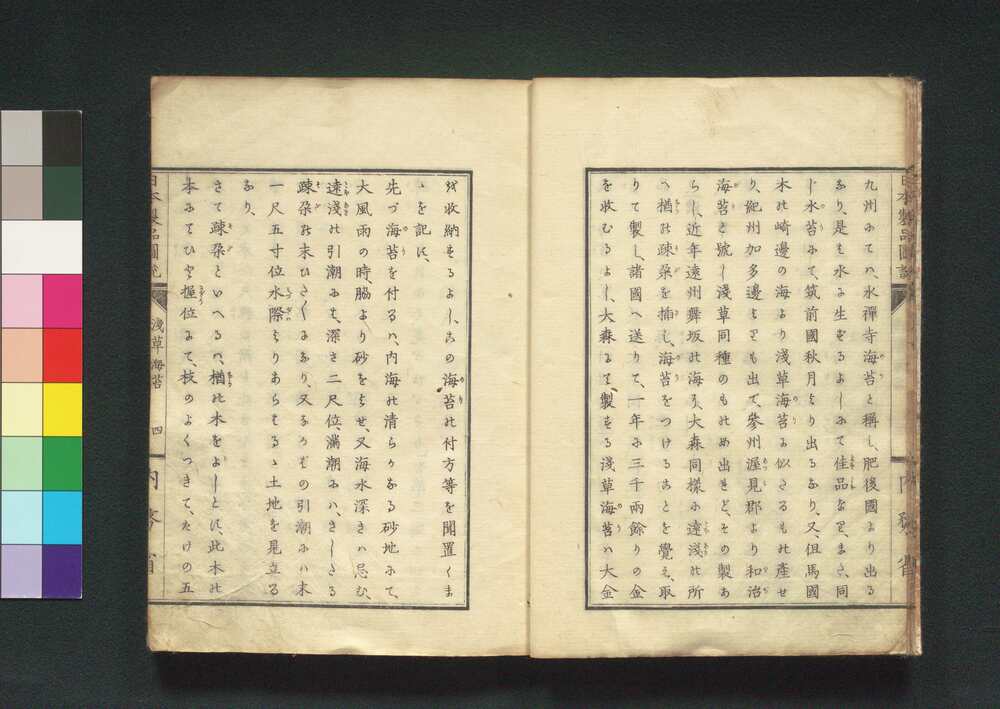 九州にてハ、水禪寺海苔と稱し、肥後國より出る
なり、是も水に生ずるよしにて佳品なり、まさ、同
じ水苔にて、筑前國秋月より出るなり、又、但馬國
木の崎邊の海より淺草海苔に似さるもの產せ
り、紀州加多邊よりも出て、參州渥見郡より和治
海苔と號し淺草同種のもの出きど、その製あ
らし、近年遠州舞坂の海え、大森同樣に遠淺の所
へ楢の疎朶を挿し、海苔をつけることを覺え、取
りて製し、諸國へ送りて、一年に三千兩餘りの金
を收むるよし、大森にて、製する淺草海苔ハ大金
を收納するよし、この海苔の付方等を聞置くま
ゝを記に、
先づ海苔を付るハ、内海の清らかなる砂地にて、
大風雨の時、脇より砂をよせ、又海水深きハ忌む、
遠淺の引潮にて、深さ二尺位、滿潮にハ、さしたる
疎朶の末ひたくになり、又なかばの引潮にハ末
一尺五寸位水際よりあらはるゝ土地を見立る
なり、
さて疎朶といへるハ、楢の木をよしとに、此木の
本にてひと握位にて、枝のよくつきて、たけの五
日本製品圖說
淺草海苔
四
内務省